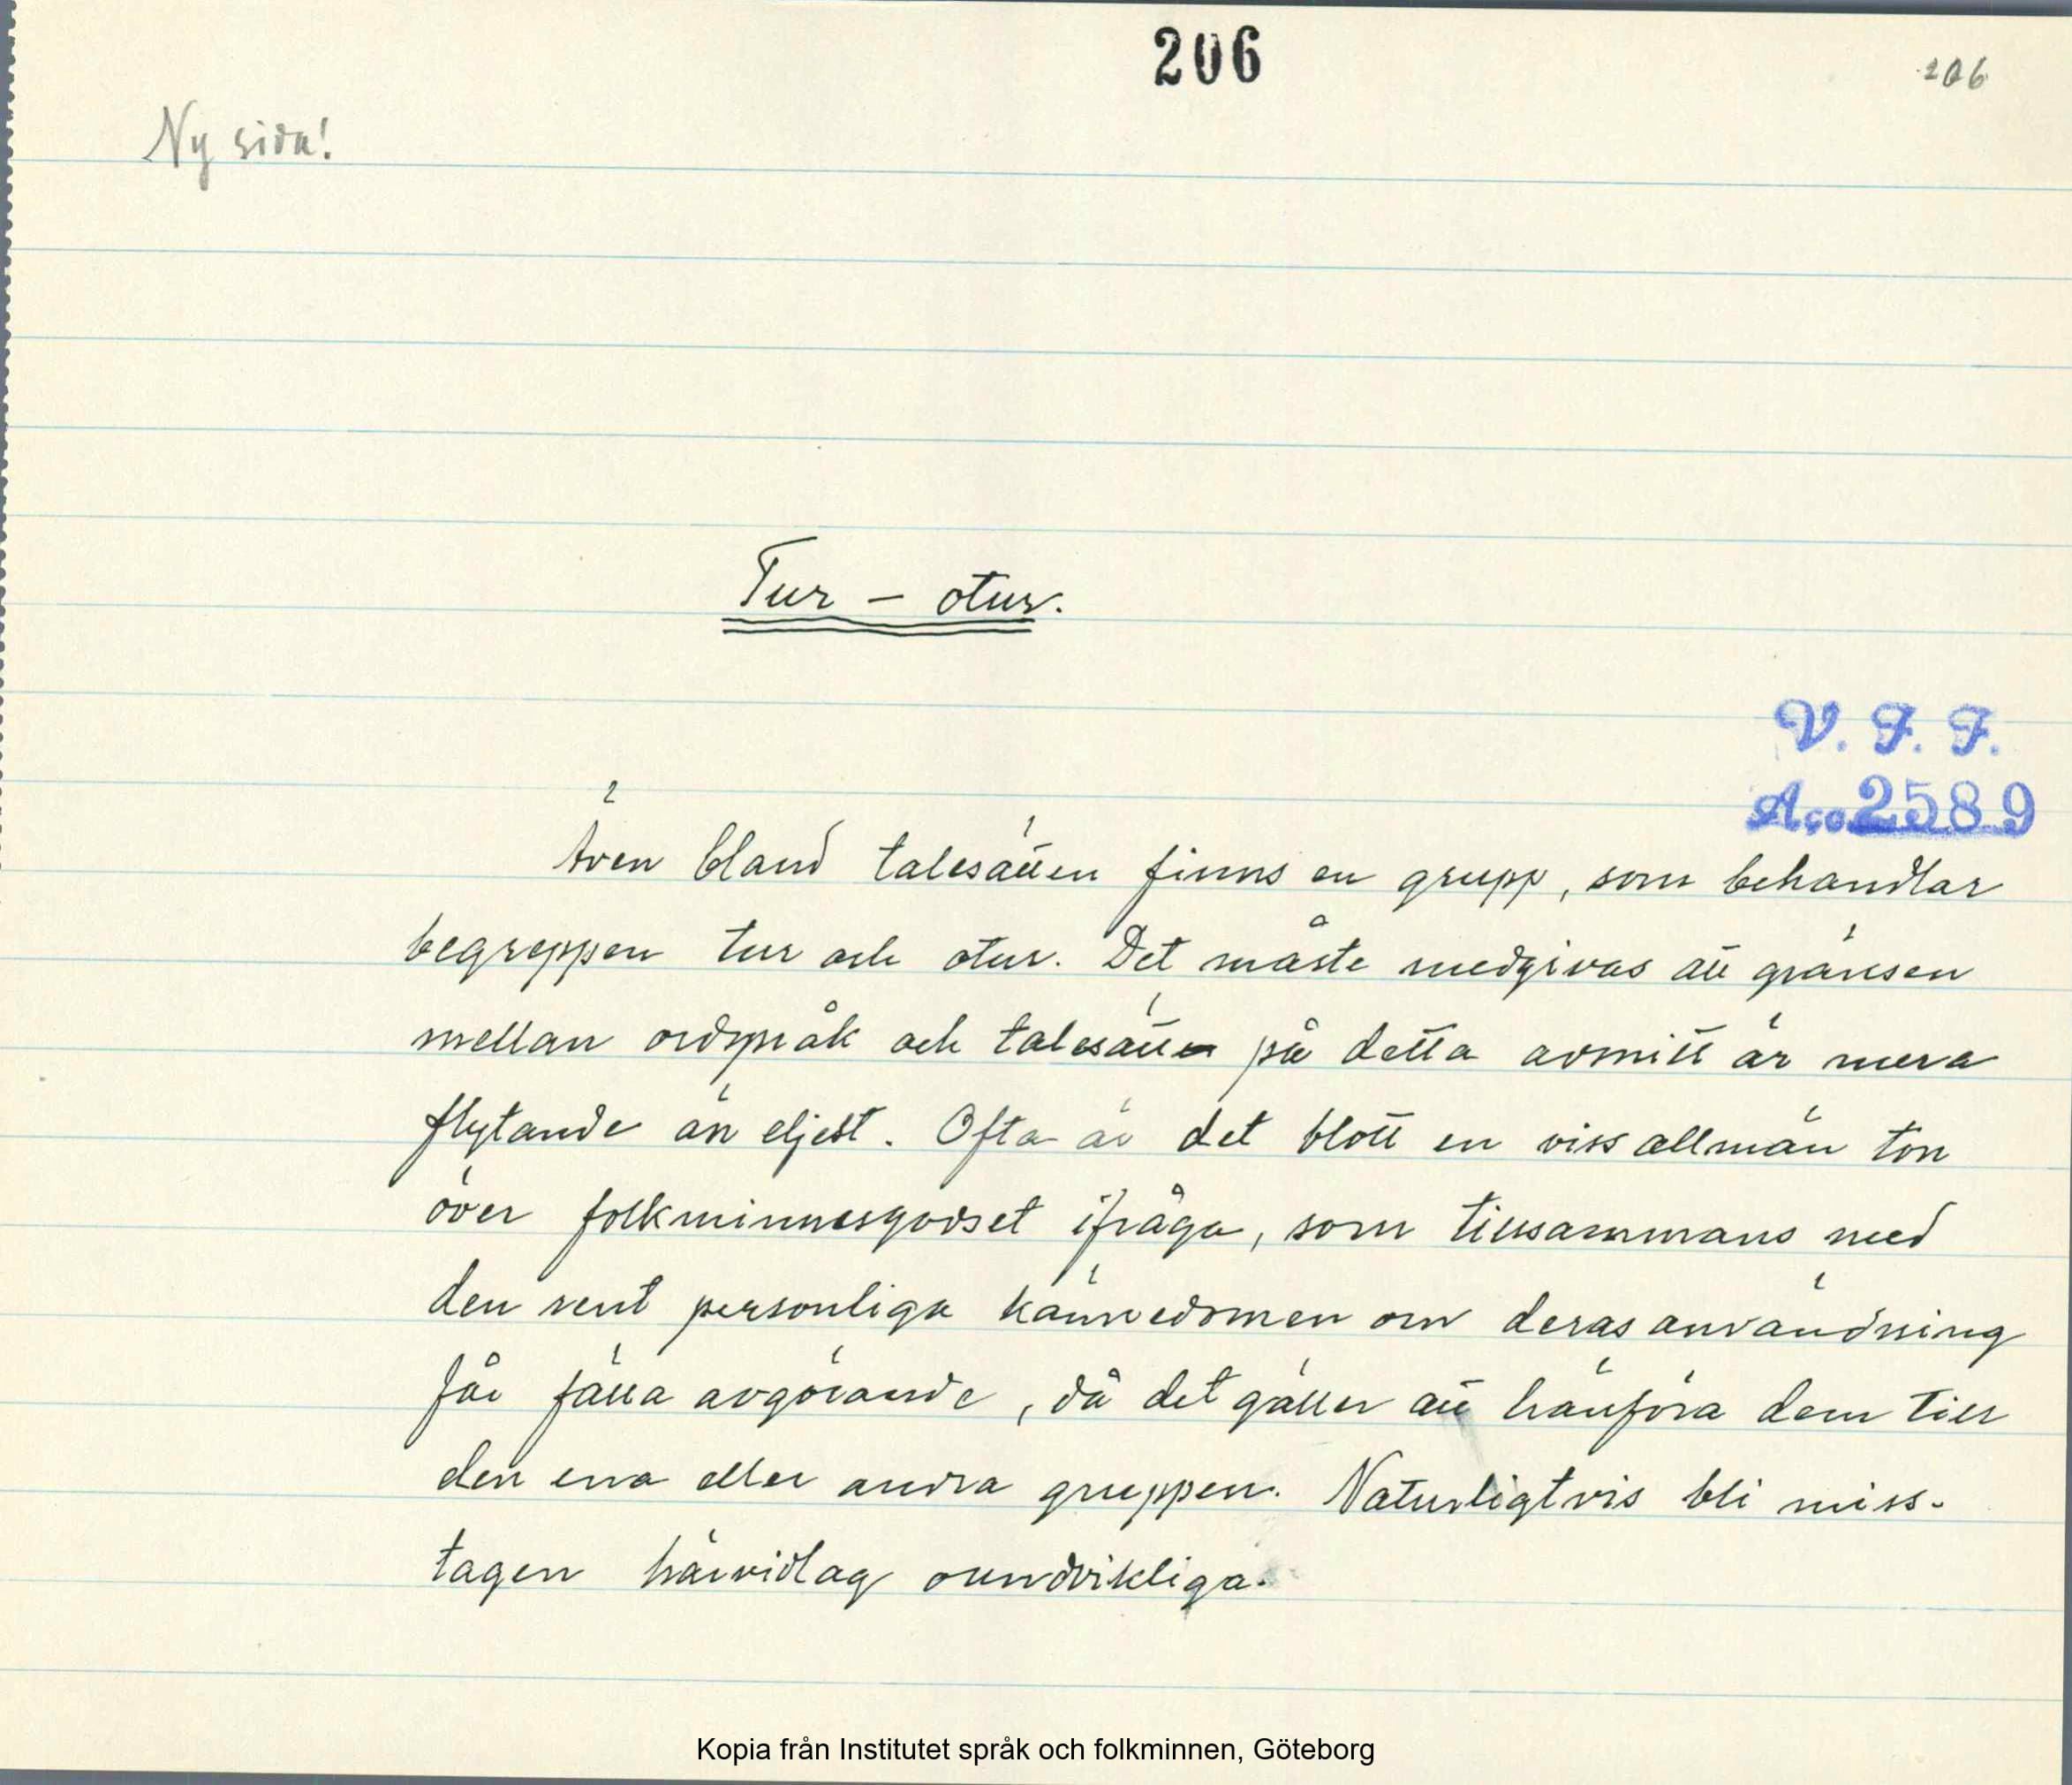 206
206
Ny sida!
Tur - otur.
V. F. F.
Acc 2589
Även bland talesätten finns en grupp, som behandlar
begreppen tur och otur. Det måste medgivas att gränsen
mellan ordspråk och talesätt på detta avsnitt är mera
flytande än eljest. Ofta är det blott en viss allmän ton
över folkminnesgodset ifråga, som tillsammans med
den rent personliga kännedomen om deras användning
får fälla avgörande, då det gäller att hänföra dem till
den ena eller andra gruppen. Naturligtvis bli miss-
tagen härvidlag oundvikliga.
Kopia från Institutet språk och folkminnen, Göteborg